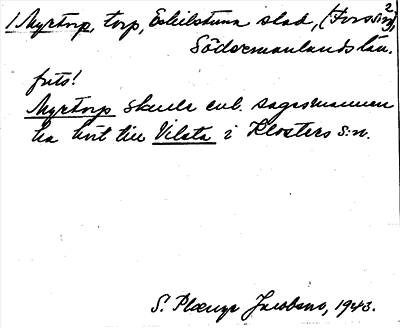 1 Myrtorp, torp, Eskilstuna stad, (Fors sn)², 
Södermanlands län.
futs!
Myrtorp skulle enl. sagesmannen
ha hört till Vilsta i Klosters s:n.
S. Jacobsno, 1943.